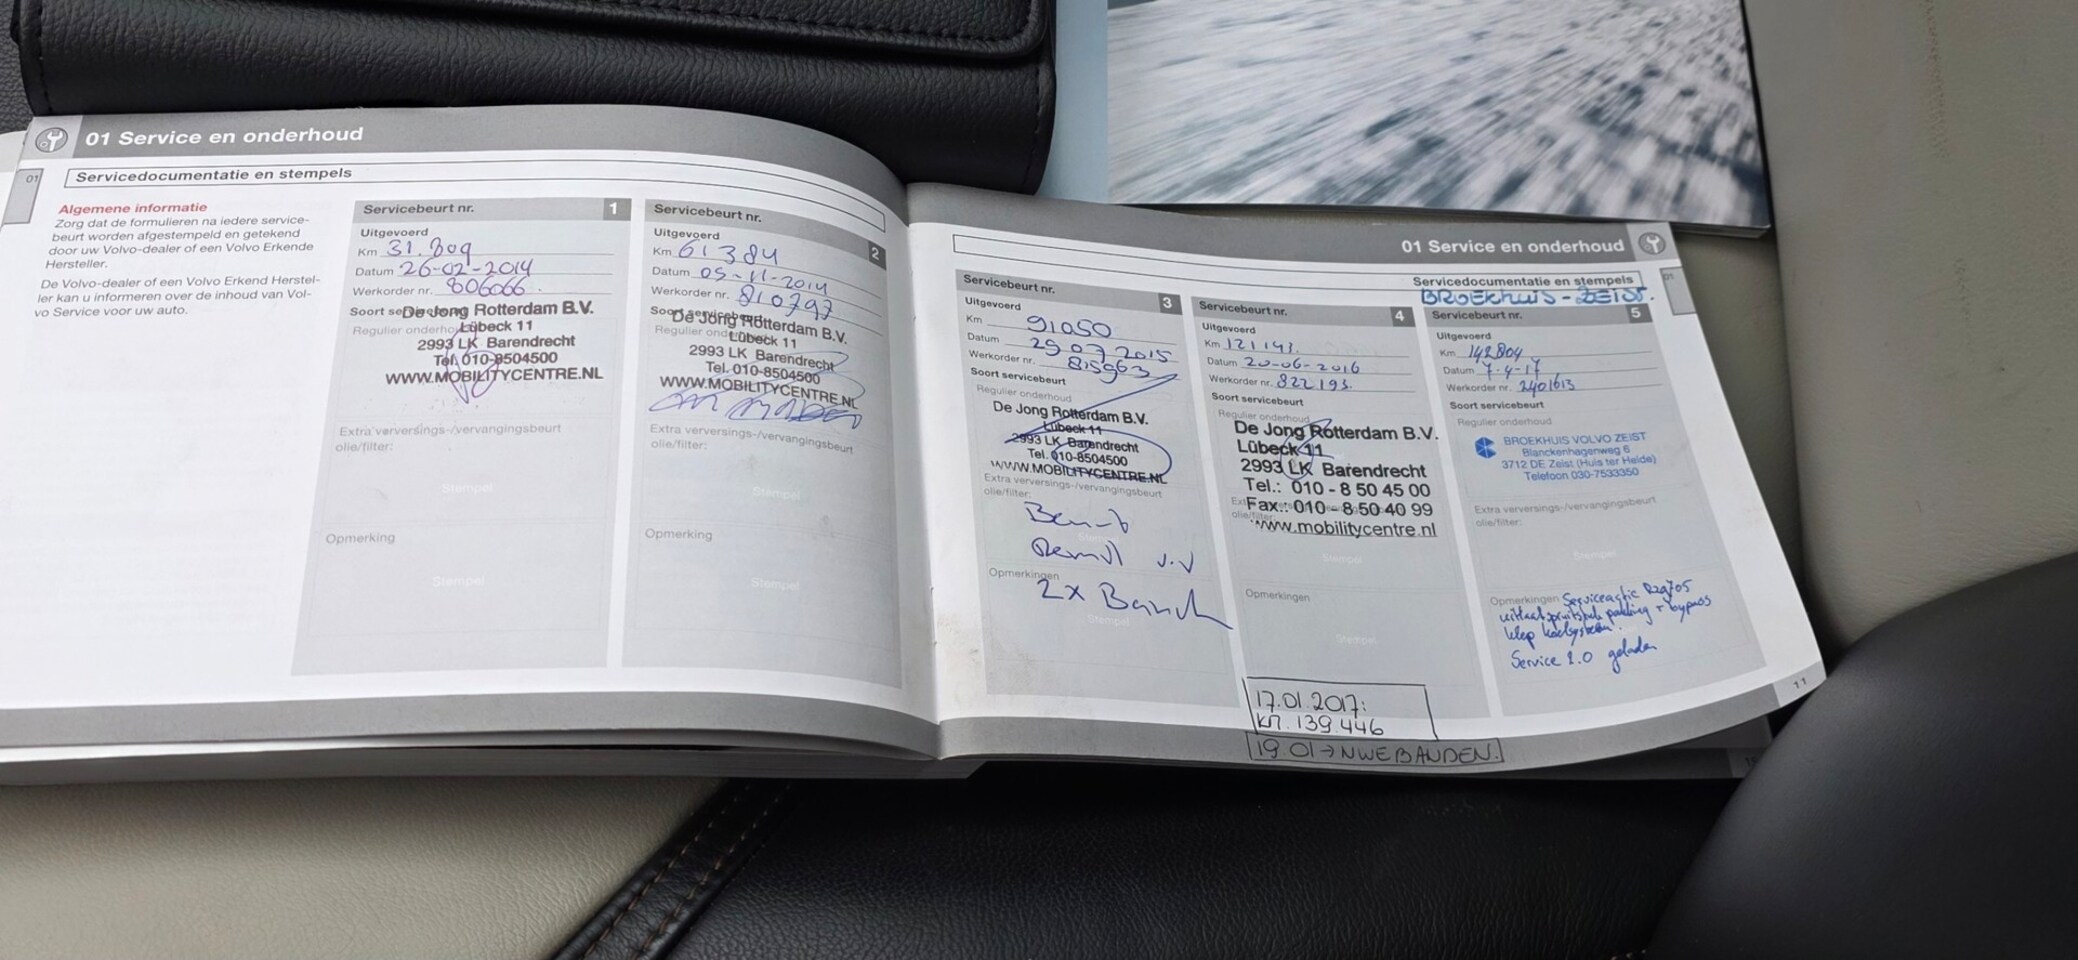 01 Service en onderhoud
01
Servicedocumentatie en stempels
Algemene informatie
Zorg dat de formulieren na iedere service-
beurt worden afgestempeld en getekend
door uw Volvo-dealer of een Volvo Erkende
Hersteller.
De Volvo-dealer of een Volvo Erkend Herstel-
ler kan u informeren over de inhoud van Vol-
vo Service voor uw auto.
Servicebeurt nr. 1
Uitgevoerd
Km 31.809
Datum 26-02-2014
Werkorder nr. 806066.
Soort
De Jong Rotterdam B.V.
Regulier
Lübeck 11
2993 LK Barendrecht
Tel. 010-8504500
WWW.MOBILITYCENTRE.NL
Extra verversings-/vervangingsbeurt
olie/filter:
Stempel
Opmerking
Stempel
Servicebeurt nr. 2
Uitgevoerd
Km 61384
Datum 05-11-2014
Werkorder nr. 810797
De Jong Rotterdam B.V.
Regulier
Lübeck 11
2993 LK Barendrecht
Tel. 010-8504500
WWW.MOBILITYCENTRE.NL
Extra verversings-/vervangingsbeurt
olie/filter:
Stempel
Opmerking
Stempel
01 Service en onderhoud
Servicedocumentatie en stempels
01
BROEKHUIS - ZEIST.
Servicebeurt nr. 3
Uitgevoerd
Km 91050
Datum 29 07 2015
Werkorder nr. 815963
Soort servicebeurt
Regulier onderhoud
De Jong Rotterdam B.V.
Lübeck 11
2993 LK Barendrecht
Tel. 010-8504500
WWW.MOBILITYCENTRE.NL
Extra verversings-/vervangingsbeurt
olie/filter:
Opmerkingen
2x
Stempel
Servicebeurt nr. 4
Uitgevoerd
Km 121141.
Datum 20-06-2016
Werkorder nr. 822193.
Soort servicebeurt
Regulier onderhoud
De Jong Rotterdam B.V.
Lübeck 11
2993 LK Barendrecht
Tel.: 010 - 8 50 45 00
Fax.: 010 - 8 50 40 99
www.mobilitycentre.nl
olie/filter:
Stempel
Opmerkingen
Stempel
17.01.2017:
KM. 139.446
19.01→NWE BANDEN.
Servicebeurt nr. 5
Uitgevoerd
Km 142804
Datum 7-4-17
Werkorder nr. 2401613
Soort servicebeurt
Regulier onderhoud
BROEKHUIS VOLVO ZEIST
Blanckenhagenweg 6
3712 DE Zeist (Huis ter Heide)
Telefoon 030-7533350
Extra verversings-/vervangingsbeurt
olie/filter:
Stempel
Opmerkingen Serviceactie R29705
pakking + bypass
klep koelsysteem.
Service 2.0 geladen
11